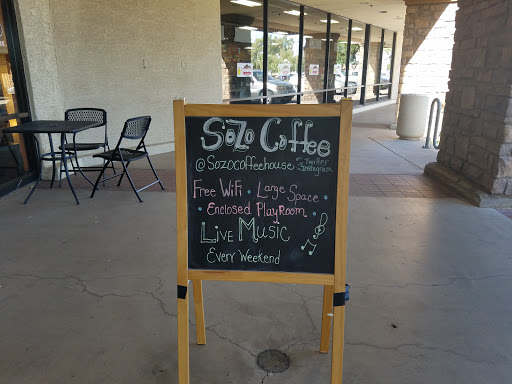 SoZo Coffee
@Sozocoffeehouse Twitter
Instagram
Free WiFi • Large Space •
• Enclosed PlayRoom •
Live Music
Every Weekend